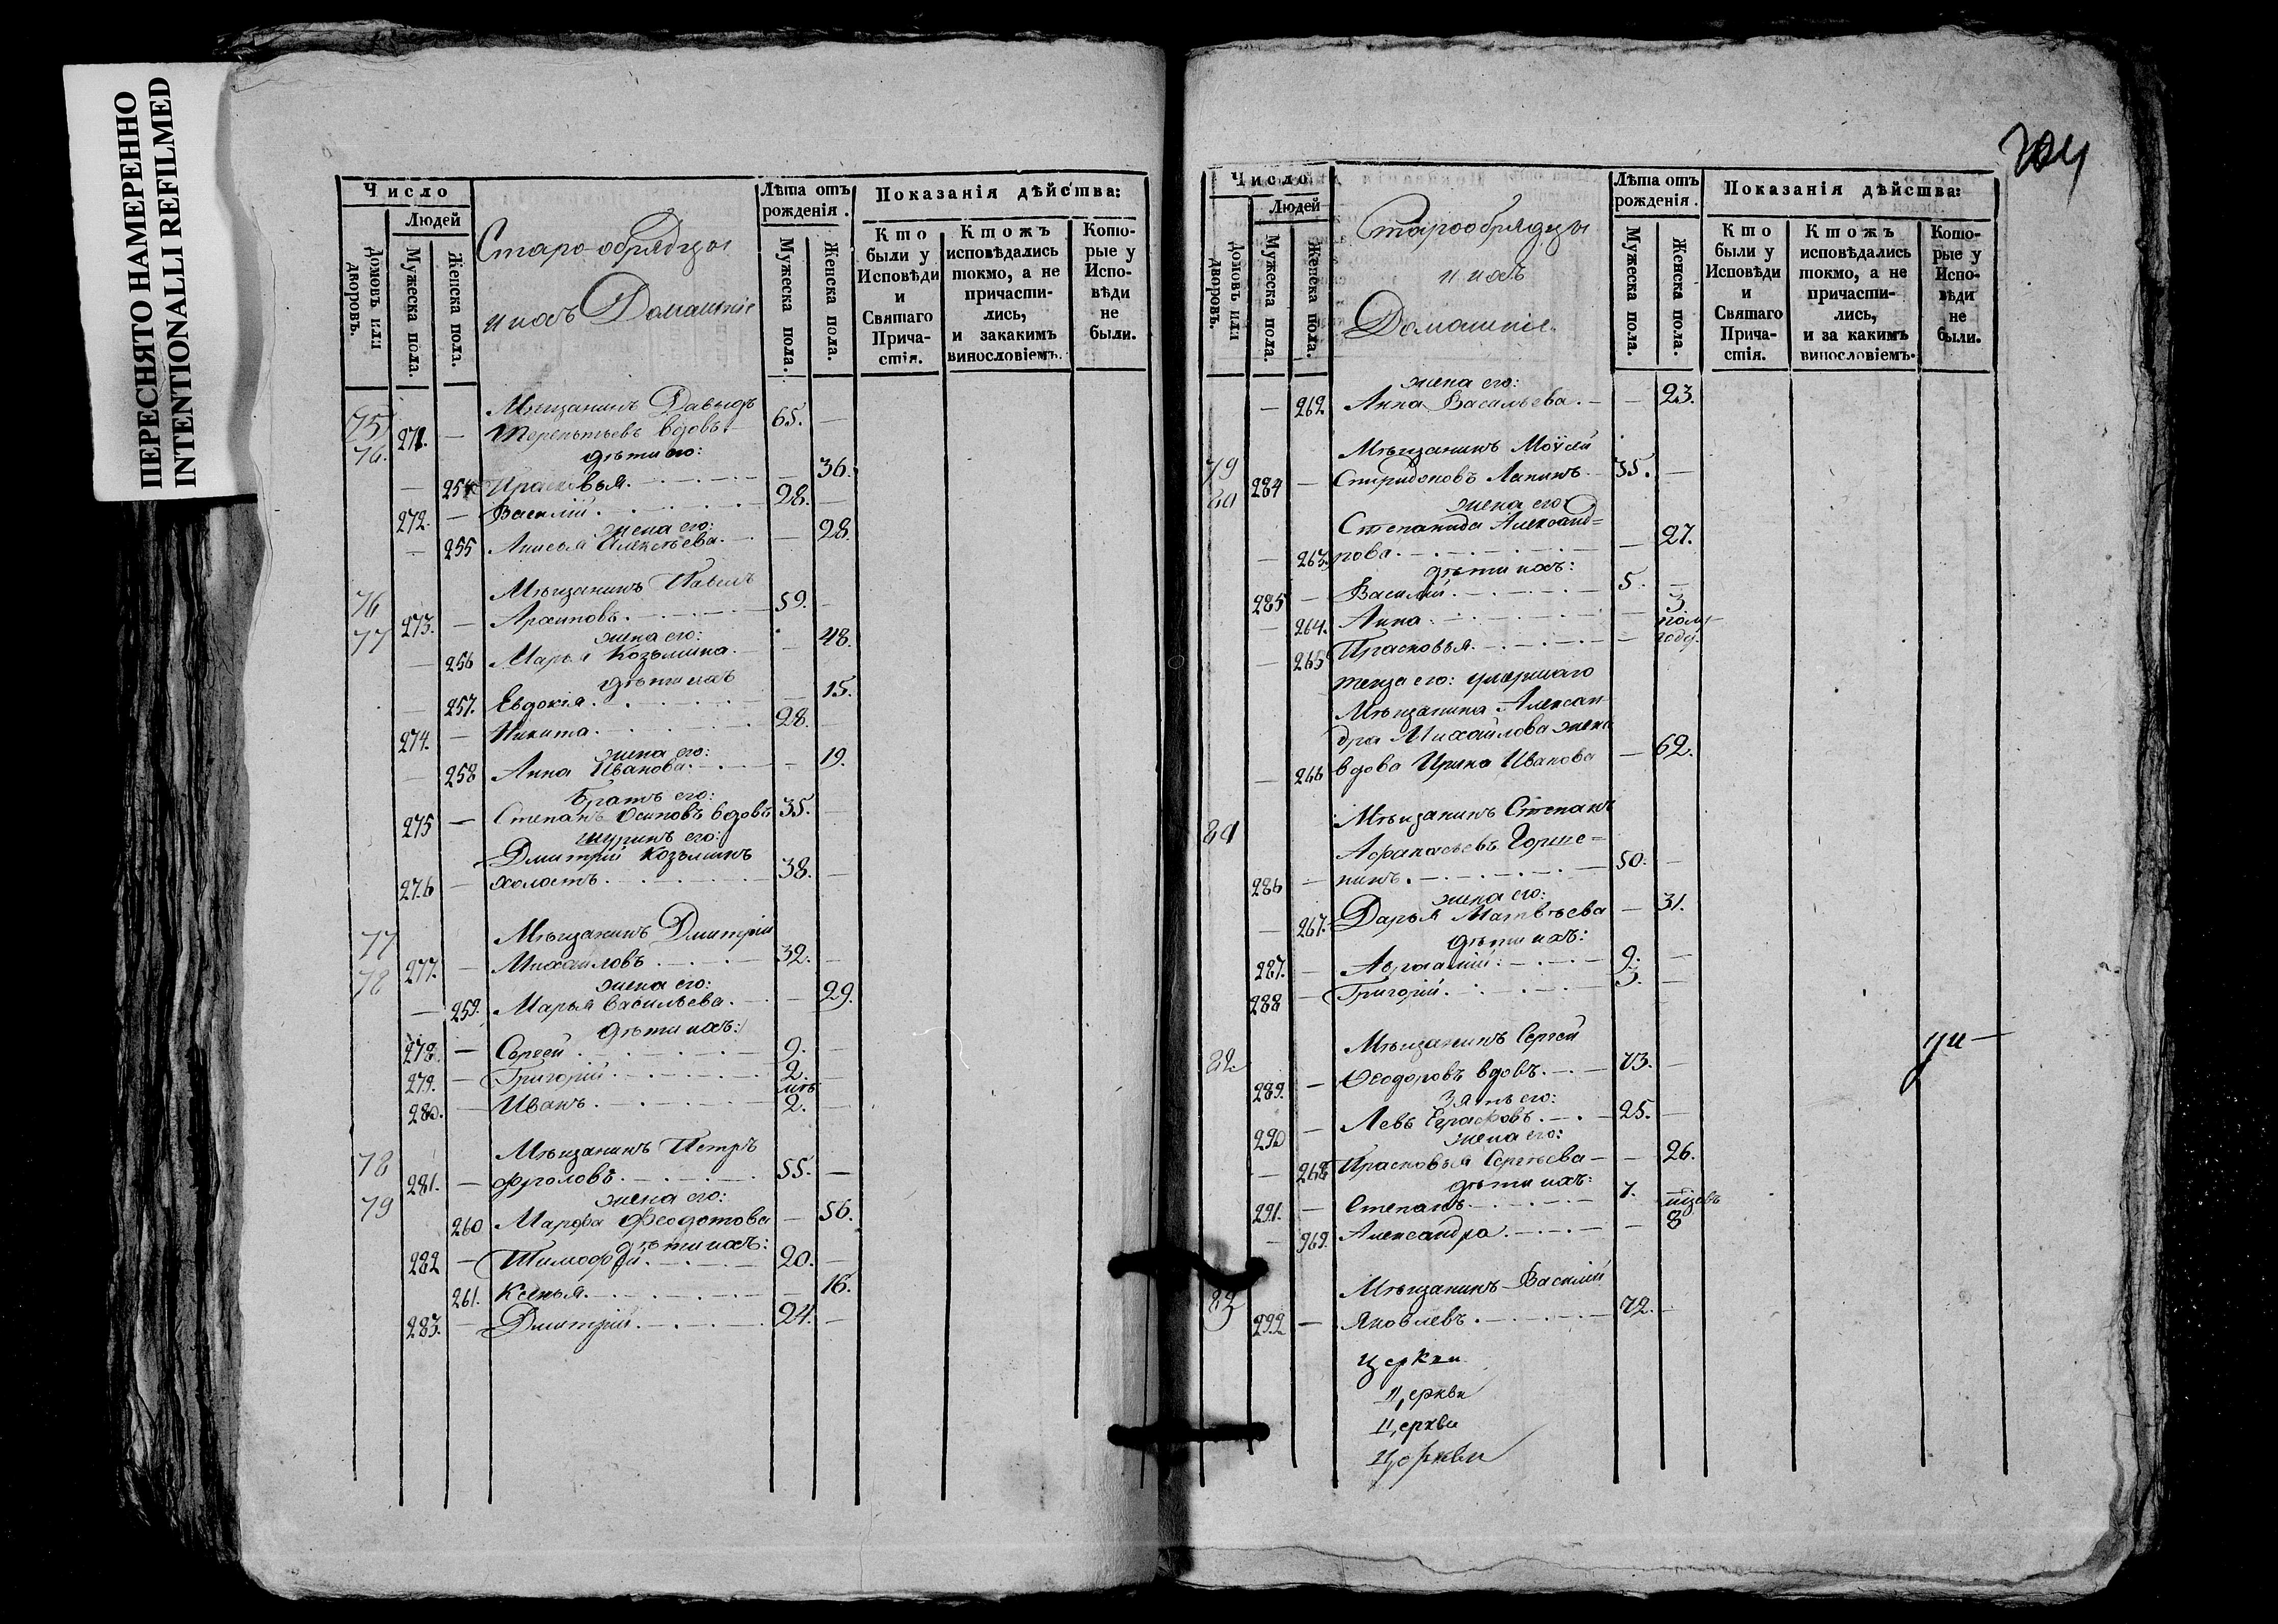 ПЕРЕСНЯТО НАМЕРЕННО
INTENTIONALLI REFILMED
Число
Людей
Домовъ или дворовъ.
Мужеска пола.
Женска пола.
Старообрядцы
и ихъ Домашніе
Лѣта отъ рожденія.
Мужеска пола.
Женска пола.
Показанія дѣйства:
Кто были у Исповѣди и Святаго Причастія.
Ктожъ исповѣдались токмо, а не причастились, и закакимъ винословіемъ.
Которые у Исповѣди не были.
75 Мѣщанинъ Давыдъ
76. 271. — Терентьевъ вдовъ. 65. —
дѣти его:
— 254 Прасковья. — 36.
272. — Василій. 28. —
жена его:
— 255 Анисья Алексѣева. — 28.
76 Мѣщанинъ Павелъ
77 273. — Архиповъ. 59. —
жена его:
— 256 Марья Козьмина. — 48.
дѣти ихъ
— 257. Евдокія. — 15.
274. — Никита. 28. —
жена его:
— 258 Анна Иванова. — 19.
братъ его:
275 — Степанъ Осиповъ вдовъ 35. —
шуринъ его:
Дмитрій Козьминъ
276 — холостъ. 38. —
77 Мѣщанинъ Дмитрій
78 277. — Михайловъ. 32. —
жена его:
— 259. Марья Васильева. — 29.
дѣти ихъ:
278. — Сергей. 9. —
279. — Григорій. 2. —
280. — Иванъ. 2. —
78 Мѣщанинъ Петръ
281. — Фроловъ. 55. —
79 жена его:
260 Марфа Феодотова — 56.
дѣти ихъ:
282 — Тимофей. 20. —
261. Ксенья. — 16.
283. — Дмитрій. 24. —
Число
Людей
Домовъ или дворовъ.
Мужеска пола.
Женска пола.
Старообрядцы
и ихъ
Домашніе.
Лѣта отъ рожденія.
Мужеска пола.
Женска пола.
Показанія дѣйства:
Кто были у Исповѣди и Святаго Причастія.
Ктожъ исповѣдались токмо, а не причастились, и за какимъ винословіемъ.
Которые у Исповѣди не были.
жена его:
— 262 Анна Васильева. — 23.
Мѣщанинъ Моѵсей
79 284 — Спиридоновъ Лапинъ. 35. —
80 жена его
Степанида Александ=
— 263. рова. — 27.
дѣти ихъ:
285 — Василій. 5. —
— 264. Анна. — 3.
полугоду.
— 265 Прасковья. —
теща его: умершаго
Мѣщанина Алексан
дра Михайлова жена
— 266 вдова Ирина Иванова — 62.
Мѣщанинъ Степанъ
81 Афанасьевъ Горше=
286 — нинъ. 50. —
жена его:
— 267. Дарья Матвѣева — 31.
дѣти ихъ:
287. — 9. —
288 — Григорій. 3. —
Мѣщанинъ Сергей
82. 289. — Ѳеодоровъ вдовъ. 73. —
зять его:
290 — Левъ 25. —
жена его:
— 268 Прасковья Сергѣева — — 26.
дѣти ихъ:
291. — Степанъ. 7.
— 269. Александра. — 8
Мѣщанинъ Василій
83 292 — Яковлевъ. 72. —
Церкви
Церкви
Церкви
Церкви